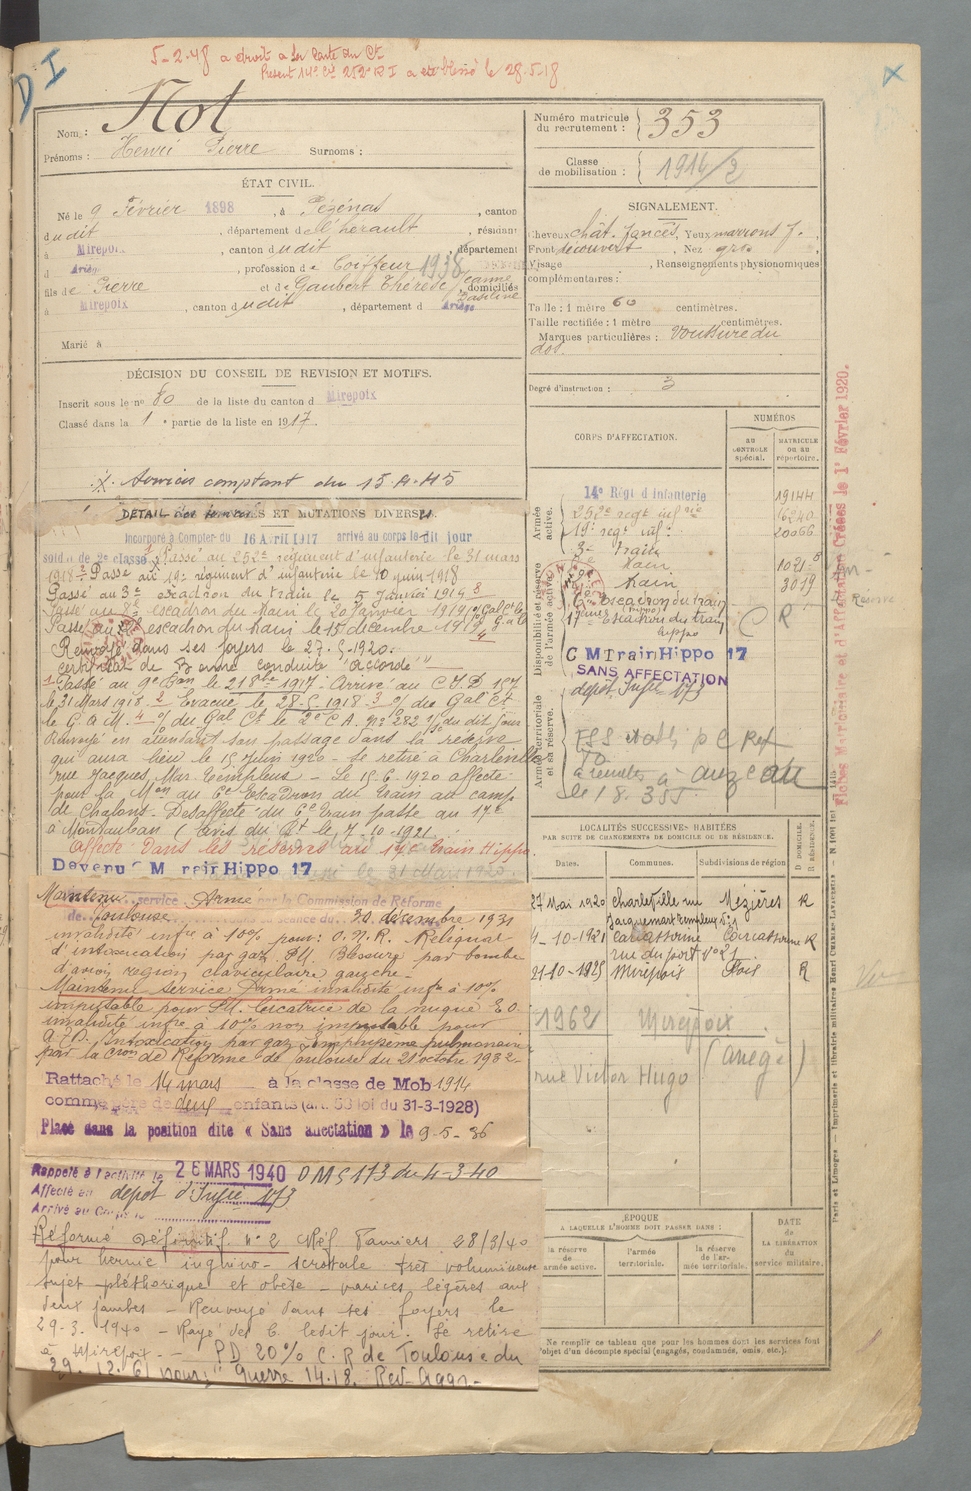 D I
5-2-48 a droit a la carte du Ct
Présent 14e Cie 252e R I a été blessé le 28-5-18
Nom : Not
Prénoms : Henri Pierre Surnoms :
ÉTAT CIVIL.
Né le 9 Février 1898, à Pézénas, canton
dudit, département de l'Hérault, résidant
à Mirepoix, canton dudit, département
d Ariège, profession de Coiffeur 1938
fils de Pierre et de Gaubert Thérèse Jeanne Basiline domiciliés
à Mirepoix, canton dudit, département d Ariège
Marié à
DÉCISION DU CONSEIL DE REVISION ET MOTIFS.
Inscrit sous le no 80 de la liste du canton d Mirepoix
Classé dans la 1e partie de la liste en 1917.
Services comptant du 15-4-45
DÉTAIL DES SERVICES ET MUTATIONS DIVERSES.
Incorporé à Compter du 16 Avril 1917 arrivé au corps le dit jour
soldat de 2e classe. Passé au 252e régiment d'infanterie le 31 mars
1918. Passé au 19e régiment d'infanterie le 10 juin 1918
Passé au 3e escadron du train le 5 Janvier 1919
Passé au escadron du train le 20 Janvier 1919
Passé au escadron du train le 15 décembre 1919
Renvoyé dans ses foyers le 27-5-1920.
certificat de Bonne conduite "accordé"
Passé au 9e Bon le 21 8bre 1917. Arrivé au C.I.D 157
le 31 Mars 1918. 2 Evacué le 28-5-1918
le G.a M. 4 du Gal Ct le 2e C A. no 282 du dit jour
Renvoyé en attendant son passage dans la réserve
qui aura lieu le 15 Juin 1920 - Se retire à Charleville
rue Jacques Mar. Templeux - Le 15.6.1920 affecté
pour la Mon au 6e Escadron du Train au camp
de Chalons. Desaffecté du 6e Train passe au 17e
à Montauban (avis du Ct le 7-10-1921.
Affecté dans les réserves au 17e Train Hippo
Devenu C M Train Hippo 17
Maintenu service Armé par la Commission de Réforme
de Toulouse dans sa séance du 30 décembre 1931
invalidité infre à 10% pour: O.N.R. Reliquat
d'intoxication par gaz. P.M. Blessure par bombe
d'avion région claviculaire gauche-
Maintenu Service Armé invalidité infre à 10%
imputable pour P.M. Cicatrice de la nuque E.O
invalidité infre à 10% non imputable pour
Intoxication par gaz emphysème pulmonaire
par la Cron de Réforme de Toulouse du 21 octobre 1932-
Rattaché le 14 mars à la classe de Mob 1914
comme père de deux enfants (art. 58 loi du 31-3-1928)
Placé dans la position dite « Sans affectation » le 9-5-36
Rappelé à l'activité le 26 MARS 1940 O M S 173 du 4-3-40
Affecté au dépôt d'Infie 173
Arrivé au Corps le
Réformé Définitif no 2 Réf. Pamiers 28/3/40
pour hernie inguino-scrotale très volumineuse
sujet pléthorique et obèse - varices légères aux
deux jambes - Renvoyé dans ses foyers le
29-3-1940 - Rayé des C. ledit jour. Se retire
à Mirepoix. - PD 20% C.R de Toulouse du
29.12.61 pour guerre 14.18. Rev-Aggr-
Numéro matricule du recrutement : 353
Classe de mobilisation : 1914/2
SIGNALEMENT.
Cheveux chât. foncés, Yeux marrons f.,
Front découvert, Nez gros
Visage , Renseignements physionomiques
complémentaires :
Taille : 1 mètre 60 centimètres.
Taille rectifiée : 1 mètre centimètres.
Marques particulières : Voussure du
dos.
Degré d'instruction : 3
CORPS D'AFFECTATION.
NUMÉROS
AU CONTROLE spécial.
MATRICULE OU AU répertoire.
Armée active.
14e Régt d infanterie 19144
252e regt infrie 16240
19e regt inf. 20066
3e train 1021
train 3019
Disponibilité et réserve de l'armée active.
6e Escadron du train
17e Escadron du train C R
hippo
C M Train Hippo 17
SANS AFFECTATION
dépôt Infie 173
Armée territoriale et sa réserve.
le 18.3.55
LOCALITÉS SUCCESSIVES HABITÉES
PAR SUITE DE CHANGEMENTS DE DOMICILE OU DE RÉSIDENCE.
Dates. Communes. Subdivisions de région D DOMICILE. R RÉSIDENCE.
27 Mai 1920 Charleville rue Mézières R
Jacquemart Templeux
4-10-1921 Carcassonne Carcassonne R
rue du port no 21
21-10-1925 Mirepoix Foix R
1962 Mirepoix
(Ariège)
rue Victor Hugo
ÉPOQUE
A LAQUELLE L'HOMME DOIT PASSER DANS :
la réserve de l'armée active.
l'armée territoriale.
la réserve de l'armée territoriale.
DATE DE LA LIBÉRATION du service militaire.
Ne remplir ce tableau que pour les hommes dont les services font
l'objet d'un décompte spécial (engagés, condamnés, omis, etc.).
Fiches Matriculaire et d'Affectation Créées le 1er Février 1920.
Paris et Limoges. — Imprimerie et librairie militaires Henri CHARLES-LAVAUZELLE.
Réserve
Vu